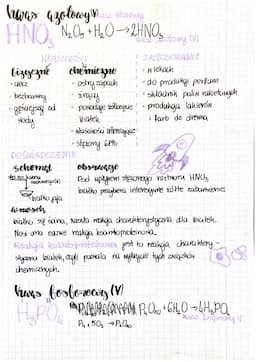 kwas azotowy(V)
HNO₃ N₂O₅ + H₂O → 2HNO₃
kwas azotowy (V)
Właściwości
zastosowanie
fizyczne
- ciecz
- bezbarwny
- gęściejszy od wody
chemiczne
- ostry zapach
- żrący
- powoduje żółknięcie białek
- właściwości utleniające
- stężony 68%
- w lekach
- do produkcji perfum
- składnik paliw rakietowych
- produkcja lakierów
i farb do drewna
DOŚWIADCZENIE
schemat
białko jaja
obserwacje
Pod wpływem stężonego roztworu HNO₃
białko przybiera intensywne żółte zabarwienie.
wniosek
białko się ścina, zaszła reakcja charakterystyczna dla białek.
Nosi ona nazwę reakcji ksantoproteinowej.
Reakcja ksantoproteinowa jest to reakcja charakterystyczna białek, czyli pozwala na wykrycie tych związków
chemicznych.
kwas fosforowy (V)
H₃PO₄ P₄O₁₀ + 6H₂O → 4H₃PO₄
P₄ + 5O₂ → P₄O₁₀